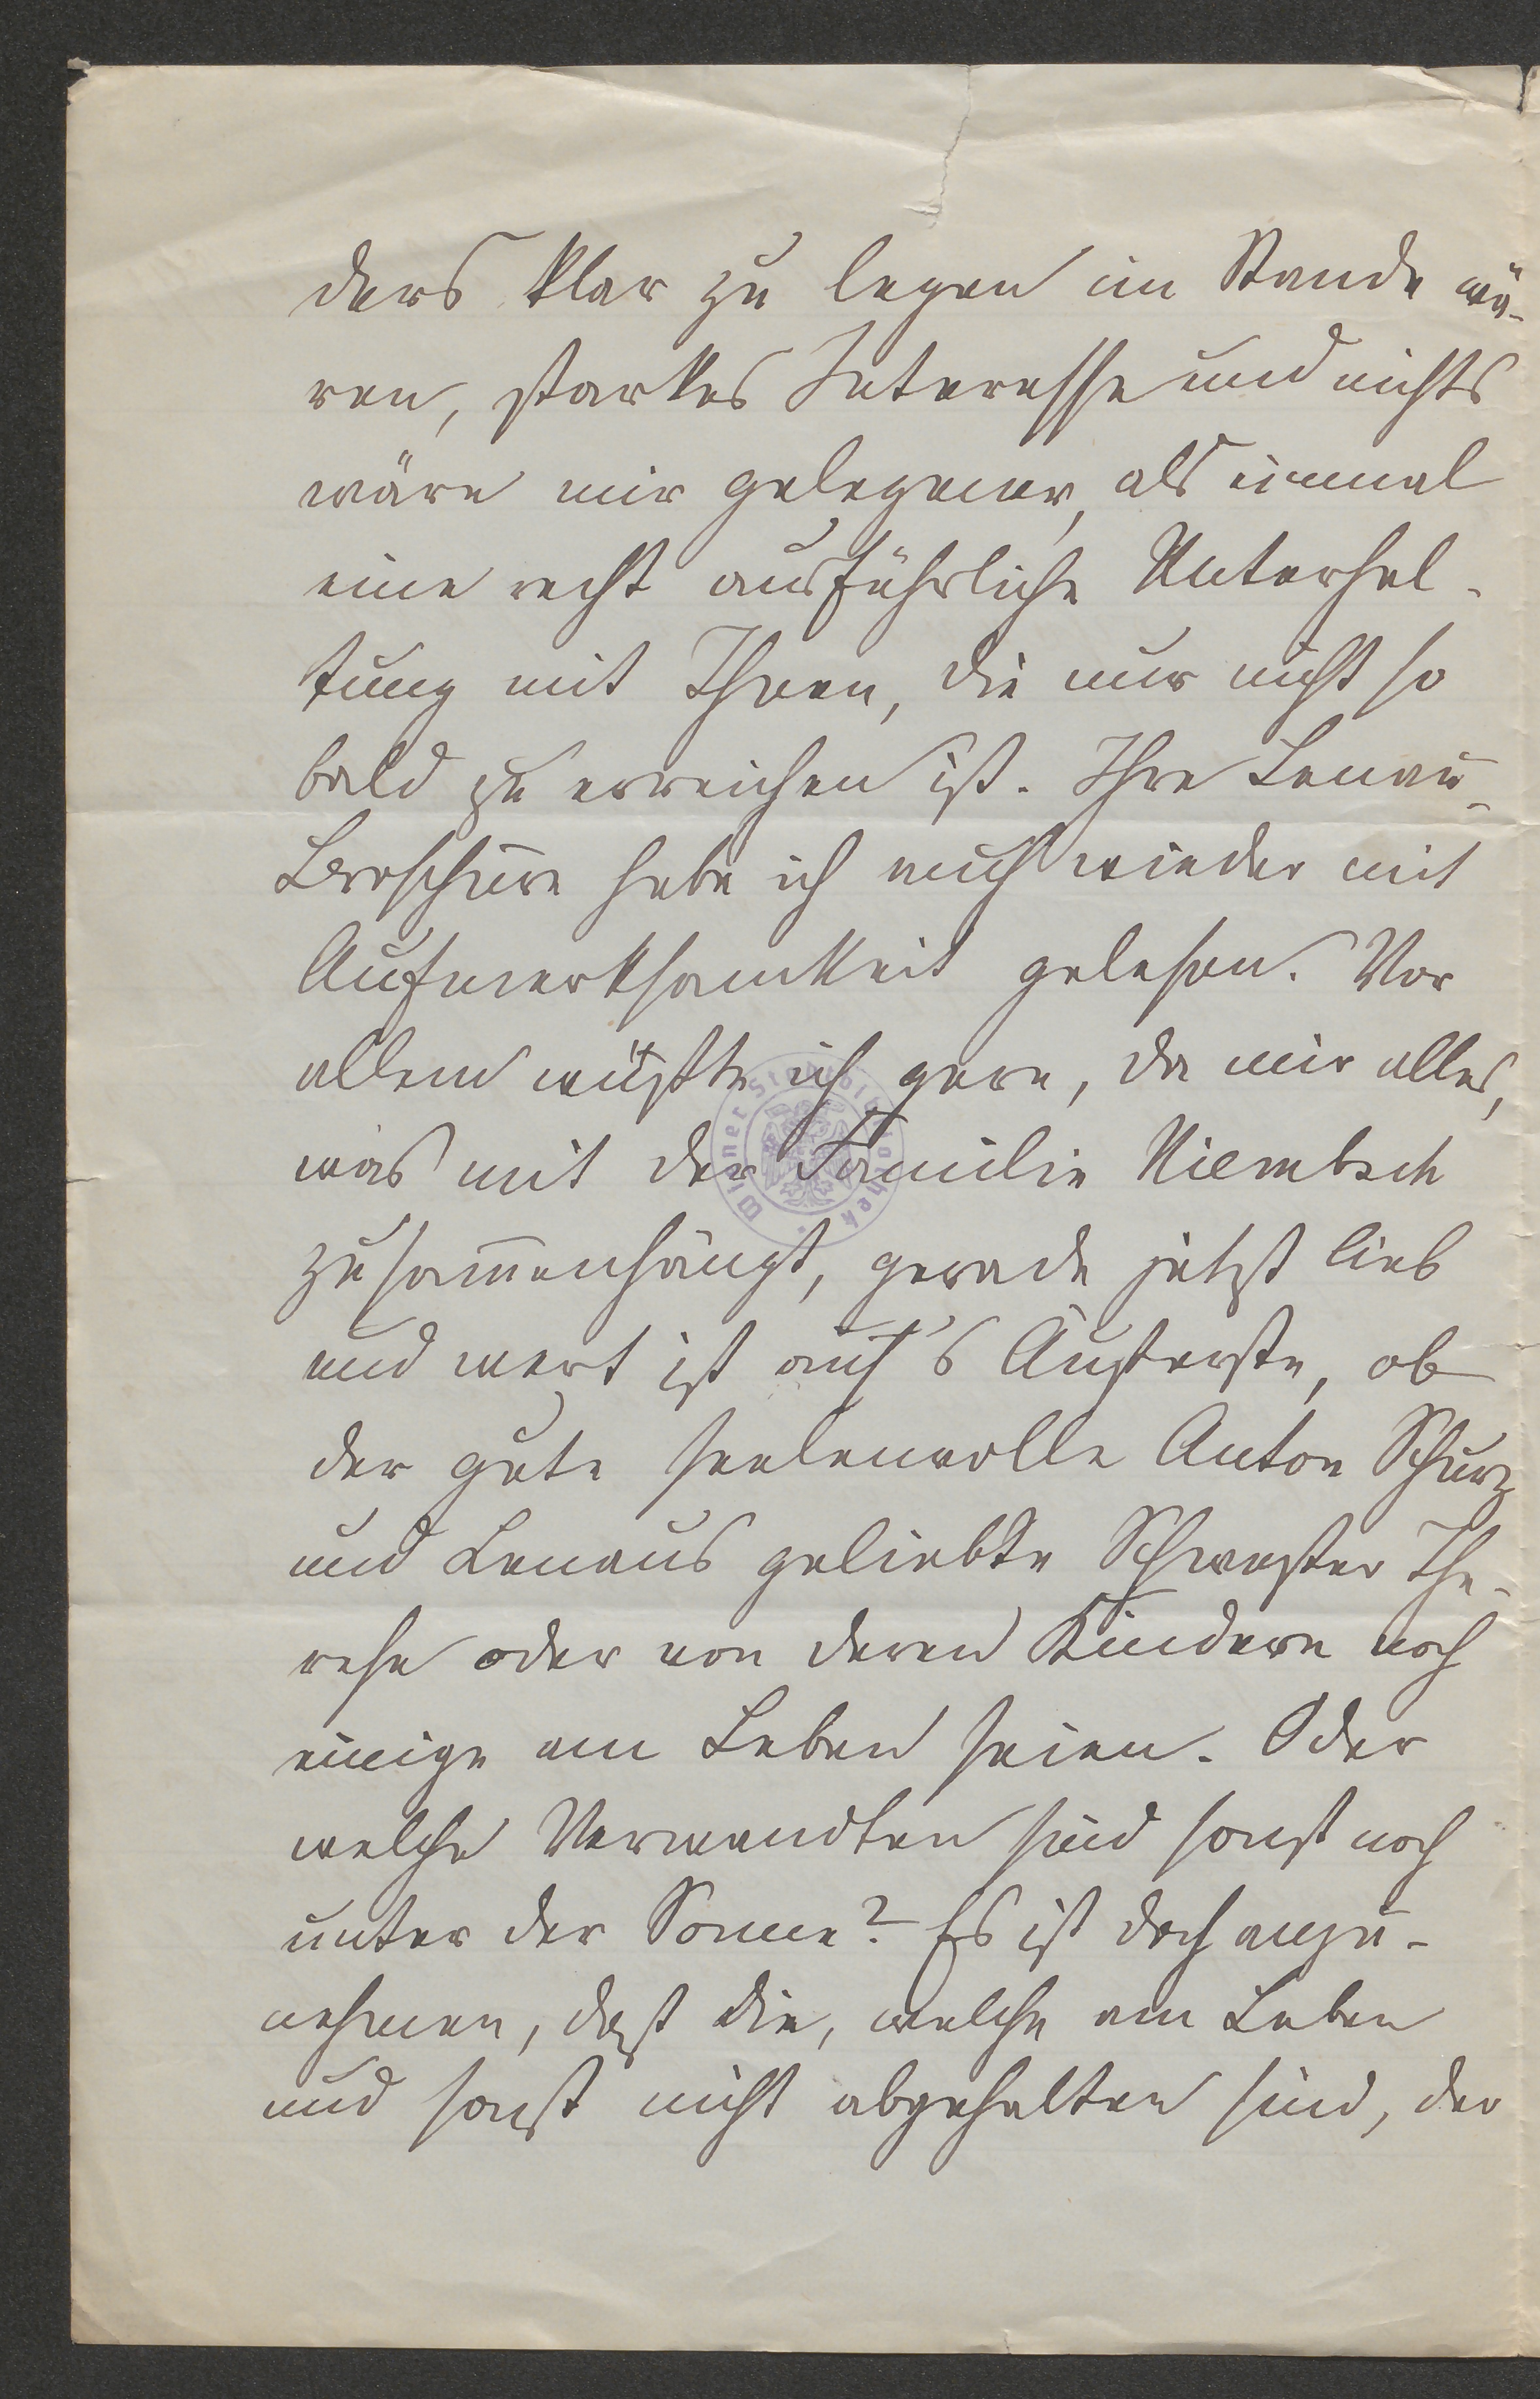 ders klar zu legen im Stande wä-
ren, starkes Interesse und nichts
wäre mir gelegener, als einmal
eine recht ausführliche Unterhal-
tung mit Ihnen, die nur nicht so
bald zu erreichen ist. Ihre Lenau-
Broschüre habe ich auch wieder mit
Aufmerksamkeit gelesen. Vor
allem wüßte ich gern, da mir alles,
was mit der Familie Niembsch
zusam̄enhängt, gerade jetzt lieb
und wert ist auf's Äußerste, ob
der gute seelenvolle Anton Schurz
und Lenaus geliebte Schwester The-
rese oder von deren Kindern noch
einige am Leben seien. Oder
welche Verwandten sind sonst noch
unter der Sonne? Es ist doch anzu-
nehmen, daß die, welche am Leben
und sonst nicht abgehalten sind, der
Wiener Stadtbibliothek